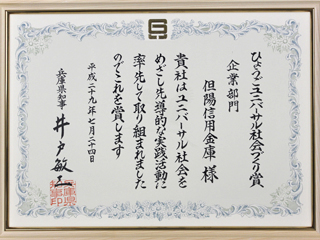 ひょうごユニバーサル社会づくり賞
企業部門
但陽信用金庫 様
貴社はユニバーサル社会を
めざし先導的な実践活動に
率先して取り組まれました
のでこれを賞します
平成二十九年七月二十四日
兵庫県知事 井戸敏三